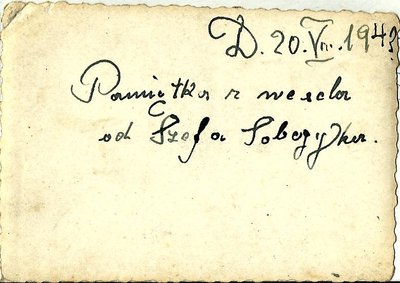 D. 20. VII. 1943
Pamiętka z wesela
od Szefa Sobczyka.